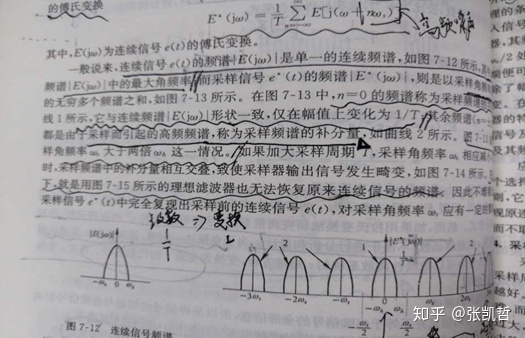 的傅氏变换
E*(jω) = 1/T Σ E[j(ω + nωs)]
其中,E(jω)为连续信号e(t)的傅氏变换。
一般说来,连续信号e(t)的频谱|E(jω)|是单一的连续频谱,如图7-12所示,
频谱|E(jω)|中的最大角频率;而采样信号e*(t)的频谱|E*(jω)|,则是以采样角频率
的无穷多个频谱之和,如图7-13所示。在图7-13中,n=0的频谱称为采样频谱的
线1所示,它与连续频谱|E(jω)|形状一致,仅在幅值上变化为1/T;其余频谱(n=
都是由于采样而引起的高频频谱,称为采样频谱的补分量,如曲线2所示。图7-13
样角频率ωs大于两倍ωh这一情况。如果加大采样周期T,采样角频率ωs相应减小
时,采样频谱中的补分量相互交叠,致使采样器输出信号发生畸变,如图7-14所示,
下,就是用图7-15所示的理想滤波器也无法恢复原来连续信号的频谱。因此不难
采样信号e*(t)中完全复现出采样前的连续信号e(t),对采样角频率ωs应有一定的
变换
1/T
|E(jω)|
|E*(jω)|
2 1 2
-ωh 0 ωh
-3ωs -2ωs -ωs 0 ωs 2ωs
图7-12 连续信号频谱
知乎 @张凯哲